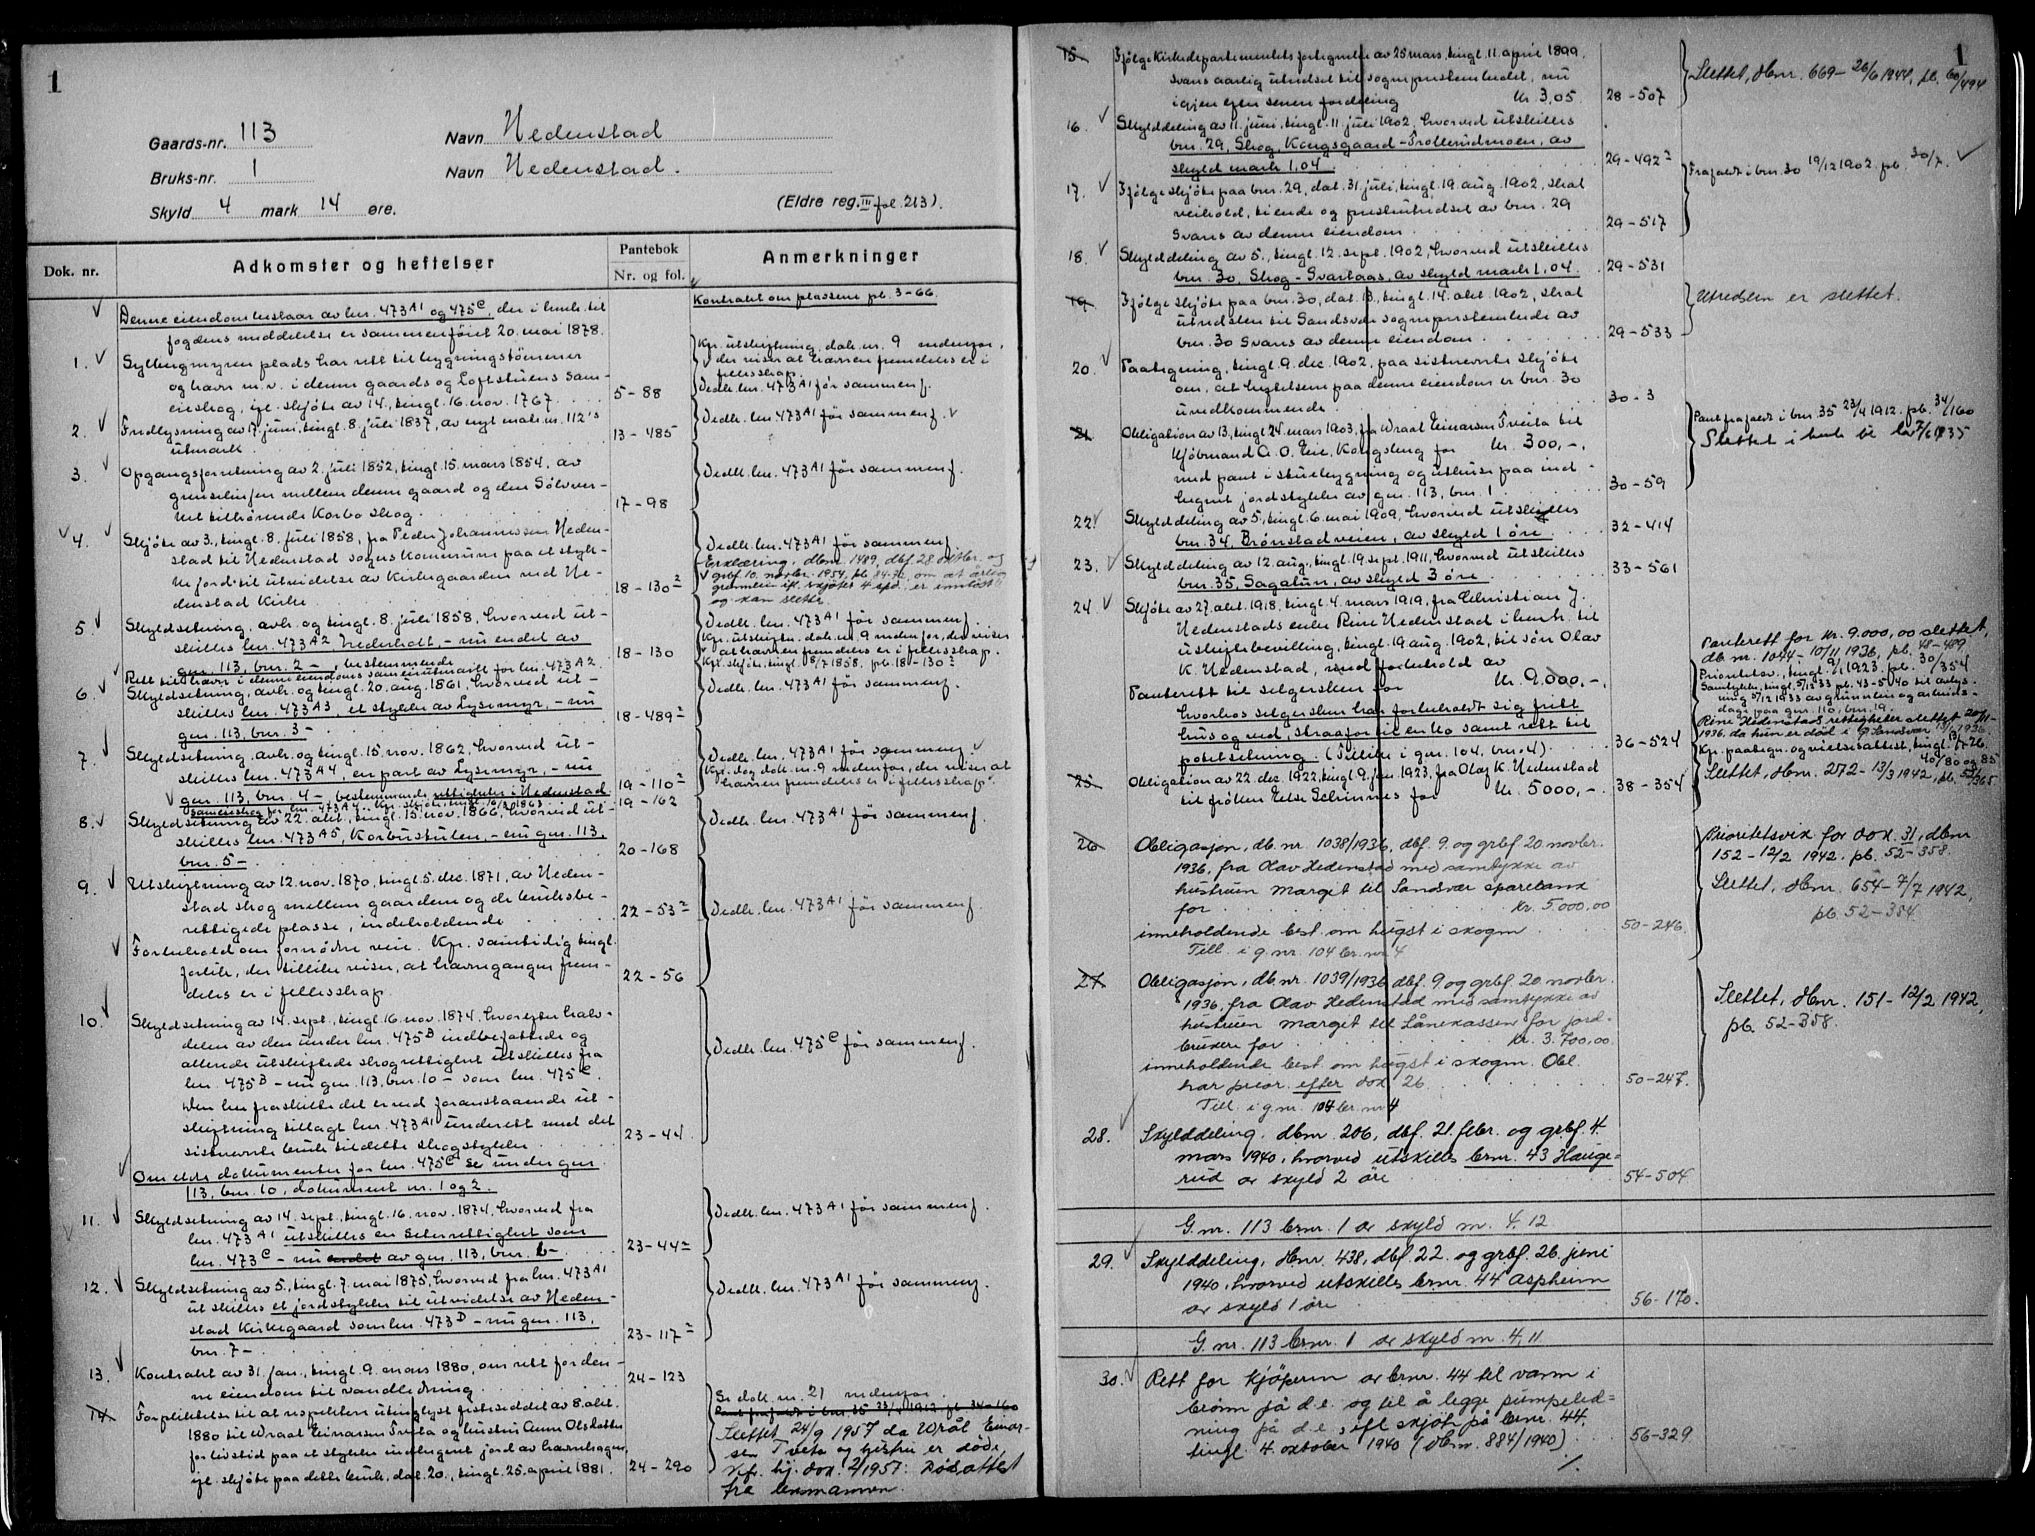 1
Gaards-nr. 113 Navn Hedenstad
Bruks-nr. 1 Navn Hedenstad.
Skyld 4 mark 14 øre. (Eldre reg. III fol. 213).
Dok. nr. Adkomster og heftelser Pantebok Nr. og fol. Anmerkninger
Denne eiendom bestaar av lnr. 473 A1 og 475 C, der i henh. til
fogdens meddelelse er sammenføiet 20. mai 1878.
Kontrakt om plassene pb. 3-66.
1. Syllengmyren plads har rett til bygningstømmer
og havn m.v. i denne gaards og Loftstuens sam-
eieskog, ifl. skjøte av 14., tingl. 16. nov. 1767. 5-88
Kfr. utskiftning, dok. nr. 9 nedenfor,
der viser at havnen fremdeles er i
fellesskap.
Vedk. lnr. 473 A1 før sammenf.
2. Fredlysning av 17. juni, tingl. 8. juli 1837, av nyt matr. nr. 112's
utmark 13-485
Vedk. lnr. 473 A1 før sammenf.
3. Opgangsforretning av 2. juli 1852, tingl. 15. mars 1854, av
grenselinjen mellem denne gaard og den Sølvver-
ket tilhørende Korbo skog. 17-98
Vedk. lnr. 473 A1 før sammenf.
4. Skjøte av 3., tingl. 8. juli 1858, fra Peder Johannessen Heden-
stad til Hedenstad sogns kommune paa et styk-
ke jord til utvidelse av Kirkegaarden ved He-
denstad Kirke 18-130 2
Vedk. lnr. 473 A1 før sammenf.
Erklæring, dbnr. 1489, dbf. 28 oktbr. og
grbf. 10. novbr. 1954, pb. 84-, om at årlig
grunnleie ifl. skjøtet 4 spd. er innløst
og kan slettes.
5. Skyldsetning, avh. og tingl. 8. juli 1858, hvorved ut-
skilles lnr. 473 A2 Hederholt, - nu endel av
gnr. 113, bnr. 2 -, bestemmende 18-130
Rett til havn i denne eiendoms sameieutmark for lnr. 473 A2.
Vedk. lnr. 473 A1 før sammenf.
Kfr. utskiftn. dok. nr. 9 nedenfor, der viser
at havnen fremdeles er i fellesskap.
Kfr. skjøte, tingl. 8/7 1858. pb. 18-130 2
6. Skyldsetning, avh. og tingl. 20. aug. 1861, hvorved ut-
skilles lnr. 473 A3, et stykke av Lysemyr, - nu
gnr. 113, bnr. 3 - 18-489 2
Vedk. lnr. 473 A1 før sammenf.
7. Skyldsetning, avh. og tingl. 15. nov. 1862, hvorved ut-
skilles lnr. 473 A4, en part av Lysemyr, - nu
gnr. 113, bnr. 4 - bestemmende rettigheter i Hedenstad 19-110 2
sameieskog for lnr. 473 A4. Kfr. skjøte, tingl. 16/3 1863 19-162
Vedk. lnr. 473 A1 før sammenf.
Kfr. dog dok. nr. 9 nedenfor, der viser at
"havnen fremdeles er i fellesskap".
8. Skyldsetning av 22. okt., tingl. 15. nov. 1866, hvorved ut-
skilles lnr. 473 A5, Korbustulen, - nu gnr. 113,
bnr. 5 - 20-168
Vedk. lnr. 473 A1 før sammenf.
9. Utskiftning av 12. nov. 1870, tingl. 5. dec. 1871, av Heden-
stad skog mellem gaardene og de bruksbe-
rettigede plasse, indeholdende 22-53 2
Forbehold om fornødne veie. Kfr. samtidig tingl.
forlik, der tillike viser, at havnegangen frem-
deles er i fellesskap 22-56
Vedk. lnr. 473 A1 før sammenf.
10. Skyldsetning av 14. sept., tingl. 16. nov. 1874, hvorefter halv-
delen av den under lnr. 475 B indbefattede og
allerede utskiftede skogrettighet utskilles fra
lnr. 475 B - nu gnr. 113, bnr. 10 - som lnr. 475 C.
Den her fraskilte del er ved foranstaaende ut-
skiftning tillagt lnr. 473 A1 under ett med det
sistnevnte bruk tildelte skogstykke 23-44
Om eldre dokumenter for lnr. 475 C se under gnr.
113, bnr. 10, dokument nr. 1 og 2.
Vedk. lnr. 475 C før sammenf.
11. Skyldsetning av 14. sept., tingl. 16. nov. 1874, hvorved fra
lnr. 473 A1 utskilles en seterrettighet som
lnr. 473 C - nu endel av gnr. 113, bnr. 6 - 23-44 2
Vedk. lnr. 473 A1 før sammenf.
12. Skyldsetning av 5., tingl. 7. mai 1875, hvorved fra lnr. 473 A1
utskilles et jordstykke til utvidelse av Heden-
stad Kirkegaard som lnr. 473 D - nu gnr. 113,
bnr. 7 - 23-117 2
Vedk. lnr. 473 A1 før sammenf.
13. Kontrakt av 31. jan., tingl. 9. mars 1880, om rett for den-
ne eiendom til vandledning 24-123
14. Forpliktelse til at respektere utinglyst festeseddel av 8. okt.
1880 til Wraal Einarsen Tveita og hustru Anne Olsdatter
for livstid paa et stykke indhegnet jord av havnehagen,
ifl. skjøte paa dette bruk, dat. 20., tingl. 25. april 1881. 24-290
Se dok. nr. 21 nedenfor.
Pant frafaldt i bnr. 35 23/4 1912. pb. 34-160
Slettet 24/9 1957 da Wrål Einar-
sen Tveita og hustru er døde,
kfr. bj. dok. 2/1957: Dødsattest
fra lensmannen.
1
15. Ifølge Kirkedepartementets fortegnelse av 25 mars, tingl. 11. april 1899,
svares aarlig utredsel til sogneprestembedet, nu
igjen efter senere fordeling Kr. 3,05. 28-507
Slettet, dbnr. 669 - 26/6 1944, pb. 60/494
16. Skylddeling av 11. juni, tingl. 11. juli 1902, hvorved utskilles
bnr. 29, Skog, Kongsgaard-Trollerudmoen, av
skyld mark 1,04. 29-492 2
17. Ifølge skjøte paa bnr. 29, dat. 31. juli, tingl. 19. aug. 1902, skal
veihold, tiende og presteutredsel av bnr. 29
svares av denne eiendom 29-517
Frafaldt i bnr. 30 19/12 1902. pb. 30/7.
18. Skylddeling av 5., tingl. 12. sept. 1902, hvorved utskilles
bnr. 30, Skog - Svartaas, av skyld mark 1,04. 29-531
19. Ifølge skjøte paa bnr. 30, dat. 13., tingl. 14. okt. 1902, skal
utredslen til Sandsvær sogneprestembede av
bnr. 30 svares av denne eiendom 29-533
Utredslen er slettet.
20. Paategning, tingl. 9. dec. 1902, paa sistnevnte skjøte
om, at heftelsene paa denne eiendom er bnr. 30
uvedkommende 30-3
21. Obligation av 13., tingl. 24. mars 1903, fra Wraal Einarsen Tveita til
Kjøbmand A. O. Eie, Kongsberg for Kr. 300,-,
med pant i stuebygning og uthuse paa ind-
hegnet jordstykke av gnr. 113, bnr. 1 30-59
Pant frafaldt i bnr. 35 23/4 1912. pb. 34/160
Slettet i henh. til lov 7/6 1935
22. Skylddeling av 5., tingl. 6. mai 1909, hvorved utskilles
bnr. 34, Brønstadveien, av skyld 1 øre 32-414
23. Skylddeling av 12. aug., tingl. 19. sept. 1911, hvorved utskilles
bnr. 35, Sagatun, av skyld 3 øre 33-561
24. Skjøte av 27. okt. 1918, tingl. 4. mars 1919, fra Christian J.
Hedenstads enke Reine Hedenstad i henh. til
uskiftebevilling, tingl. 19. aug. 1902, til søn Olav
K. Hedenstad, med forbehold av
Panterett til selgersken for Kr. 9.000,-,
hvorhos selgersken har forbeholdt sig fritt
hus og ved, straafor til en ko samt rett til
potetsetning. (Tillike i gnr. 104, bnr. 4). 36-524
Panterett for kr. 9.000,00 slettet,
db. nr. 1044 - 10/11 1936, pb. 48-489.
Prioritetsv., tingl. 9/1 1923. pb. 30/354
Samtykke, tingl. 5/12 33 pb. 43-5 40 til avlys-
ning 5/12 1933 av grunnleie og arbeids-
dage paa gnr. 110, bnr. 19.
Reine Hedenstads rettigheter slettet 20/11-
1936, da hun er død i Sandsvær 1936.
Kfr. paategn. og vielsesattest, tingl. 26.
40/80 og 85
25. Obligation av 22. dec. 1922, tingl. 9. jan. 1923, fra Olaf K. Hedenstad
til frøken Else Schinnes for Kr. 5000,-. 38-354
Slettet, dbnr. 272 - 13/3 1942, pb. 52/365
26. Obligasjon, db. nr. 1038/1936, dbf. 9. og grbf. 20. novbr.
1936, fra Olav Hedenstad med samtykke av
hustruen Margit til Sandsvær sparebank
for kr. 5.000,00
inneholdende best. om hugst i skogen 50-246.
Till. i g.nr. 104 br. nr. 4
Prioritetsvik. for dok. 31, dbnr.
152 - 12/2 1942. pb. 52-358.
Slettet, dbnr. 654 - 7/7 1942,
pb. 52-384.
27. Obligasjon, db. nr. 1039/1936 dbf. 9. og grbf. 20. novbr.
1936, fra Olav Hedenstad med samtykke av
hustruen Margit til Lånekassen for jord-
brukere for kr. 3.700,00
inneholdende best. om hugst i skogen. Obl.
har prior. efter dok. 26 50-247.
Till. i g.nr. 104 br. nr. 4
Slettet, dbnr. 151 - 12/2 1942,
pb. 52-358.
28. Skylddeling, dbnr. 206, dbf. 21. febr. og grbf. 4
mars 1940, hvorved utskilles brnr. 43 Hauge-
rud av skyld 2 øre 54-504
G.nr. 113 brnr. 1 av skyld m. 4.12
29. Skylddeling, dbnr. 438, dbf. 22. og grbf. 26. juni
1940, hvorved utskilles brnr. 44 Aspheim
av skyld 1 øre 56-170.
G.nr. 113 brnr. 1 av skyld m. 4.11
30. Rett for kjøperen av brnr. 44 til vann i
brønn på d.e. og til å legge pumpeled-
ning på d.e., ifl. skjøte på brnr. 44,
tingl. 4 oktober 1940 (dbnr. 884/1940). 56-329